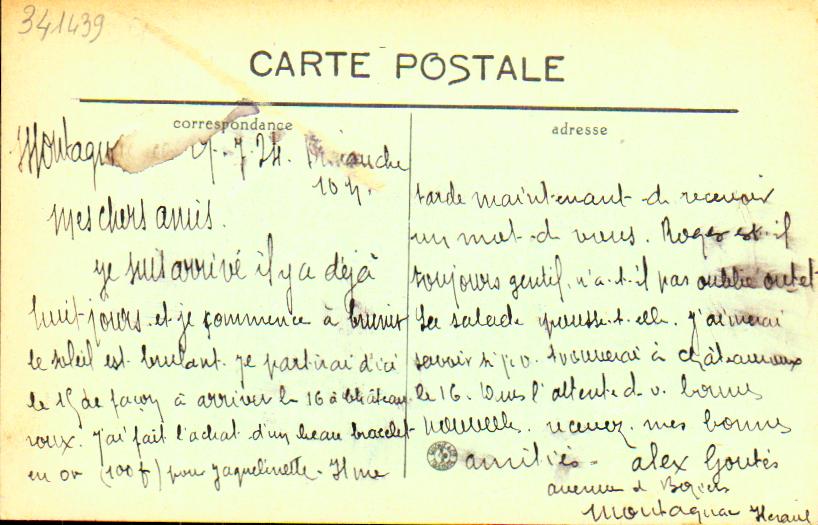 341439
CARTE POSTALE
correspondance
adresse
7.24. Dimanche
10 h.
Mes chers amis.
Je suis arrivé il y a déjà
huit jours et je commence à brunir
le soleil est brulant. Je partirai d'ici
le 15 de façon à arriver le 16 à Château
roux. J'ai fait l'achat d'un beau bracelet
en or (100f) pour Jaquelinette - Il me
tarde maintenant de recevoir
un mot de vous. Roger est-il
toujours gentil, n'a-t-il pas oublié
La salade pousse-t-elle. J'aimerai
savoir si je v. trouverai à Châteauroux
le 16. Dans l'attente de v. bonnes
nouvelles. recevez mes bonnes
amitiés - Alex Goutés
avenue de Béziers
Montagnac Herault